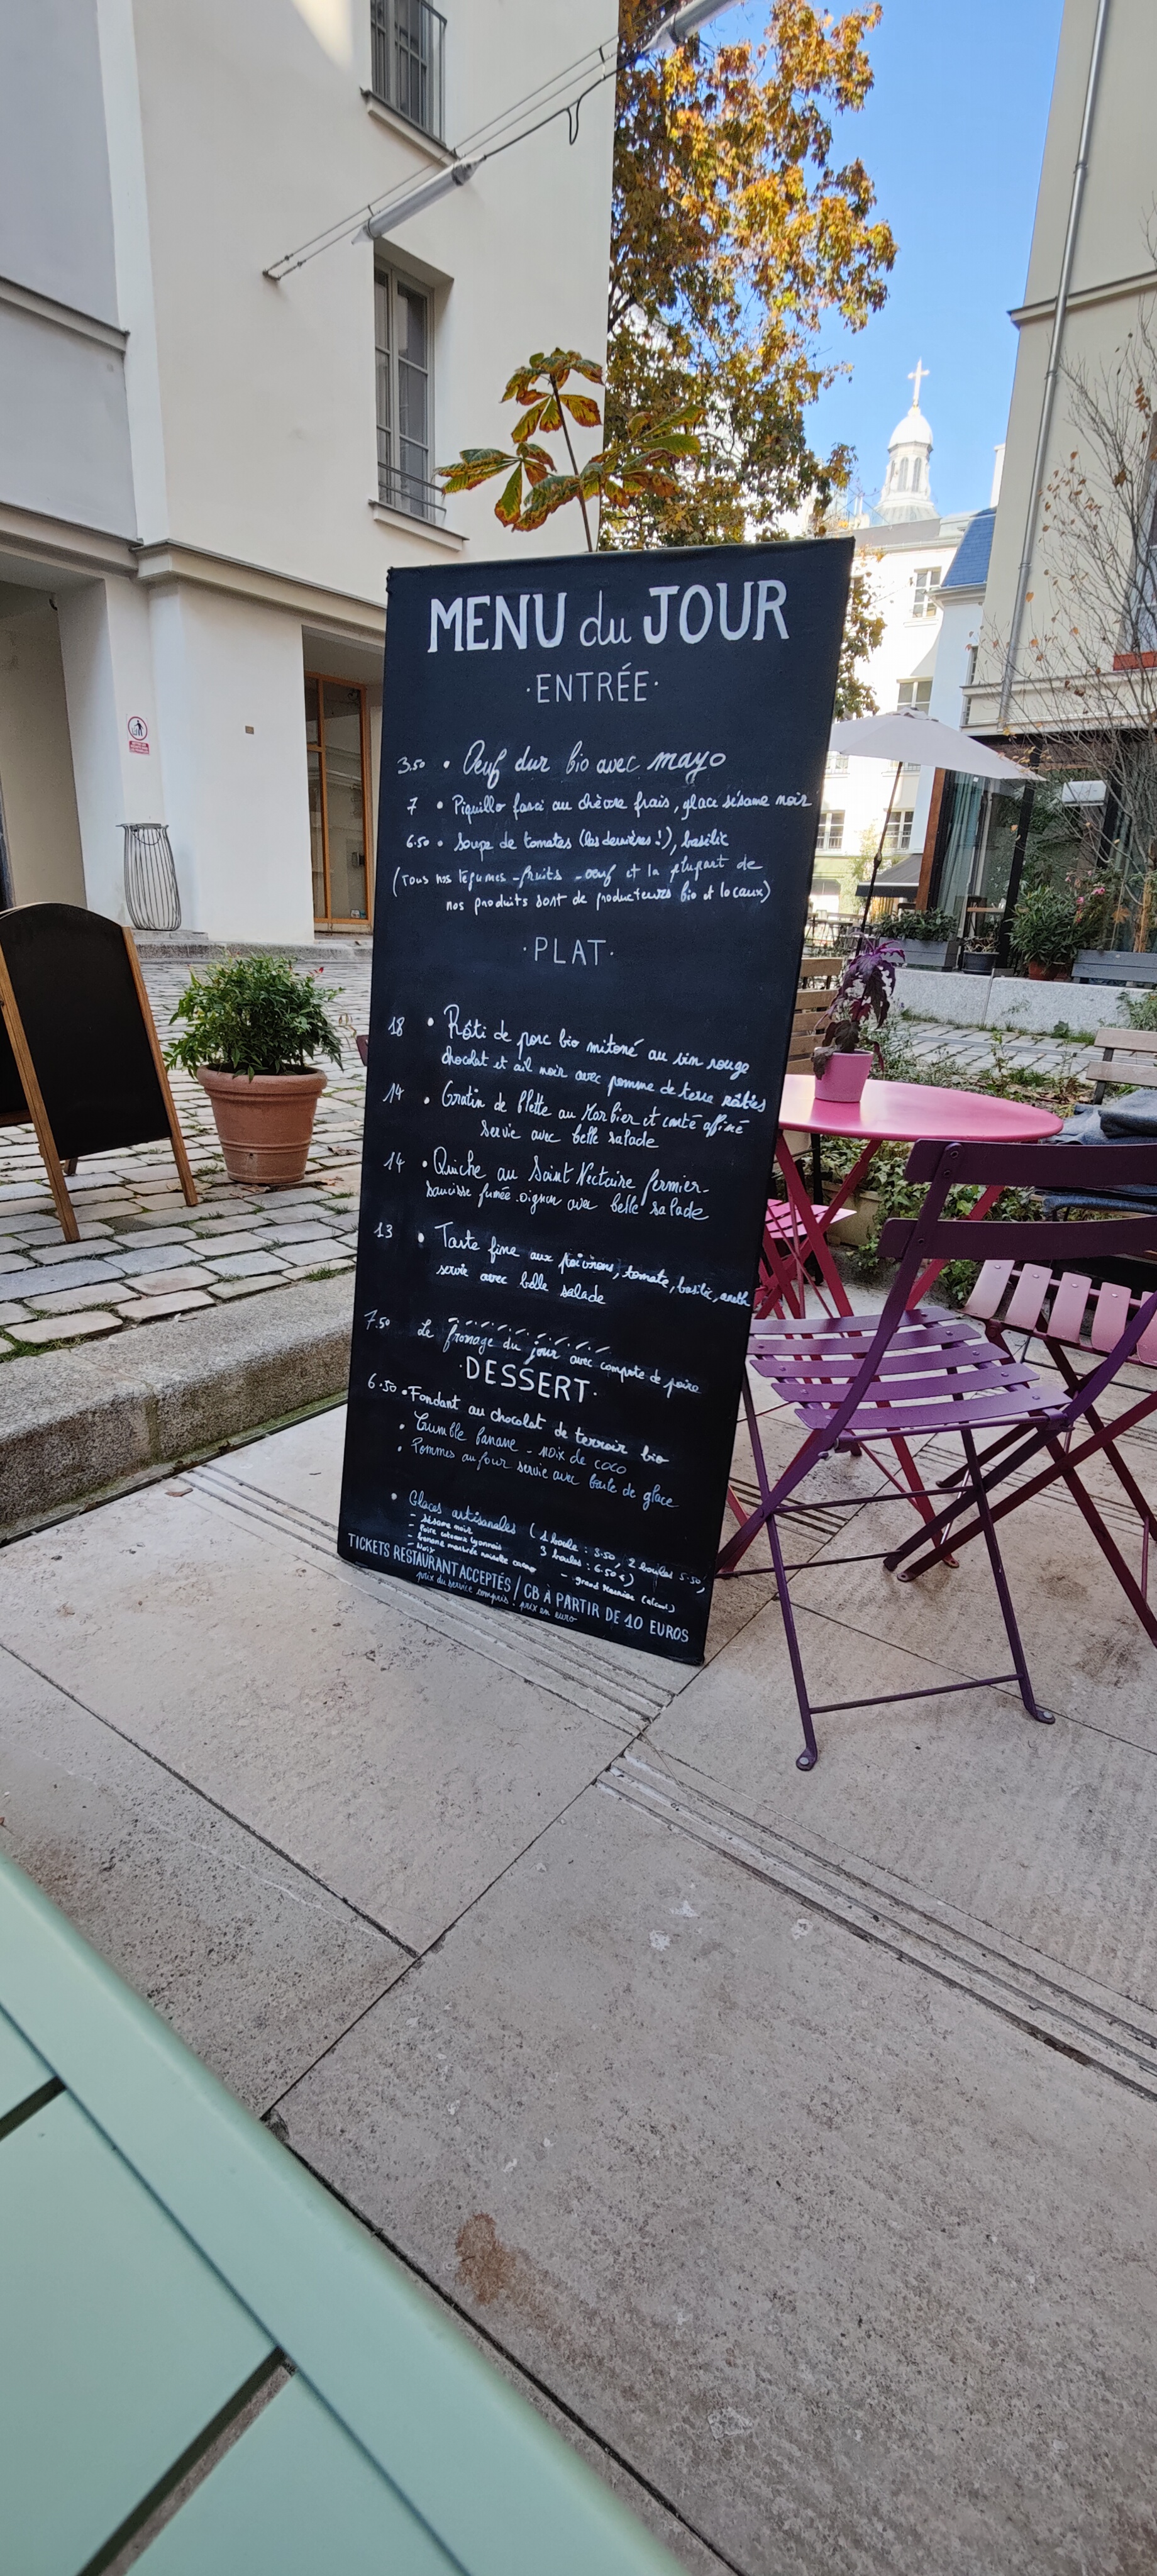 MENU du JOUR
·ENTRÉE·
3.50 • Oeuf dur bio avec mayo
7 • Piquillo farci au chèvre frais, glace sésame noir
6.50 • Soupe de tomates (les dernières !), basilic
(Tous nos légumes - fruits - oeuf et la plupart de
nos produits sont de producteurs bio et locaux)
·PLAT·
18 • Rôti de porc bio mitoné au vin rouge
chocolat et ail noir avec pomme de terre rôties
14 • Gratin de blette au Morbier et comté affiné
servie avec belle salade
14 • Quiche au Saint Nectaire fermier-
saucisse fumée oignon avec belle salade
13 • Tarte fine aux poivrons, tomate, basilic, aneth
servie avec belle salade
7.50 Le fromage du jour avec compote de poire
·DESSERT·
6.50 • Fondant au chocolat de terroir bio
• Crumble banane - noix de coco
• Pommes au four servie avec boule de glace
• Glaces artisanales (1 boule : 3.50, 2 boules 5.50,
3 boules : 6.50 €)
- sésame noir
- Poire coteaux lyonnais
- banane noisette
- Noix
- grand Marnier (alcool)
TICKETS RESTAURANT ACCEPTÉS / CB À PARTIR DE 10 EUROS
prix du service compris. prix en euro